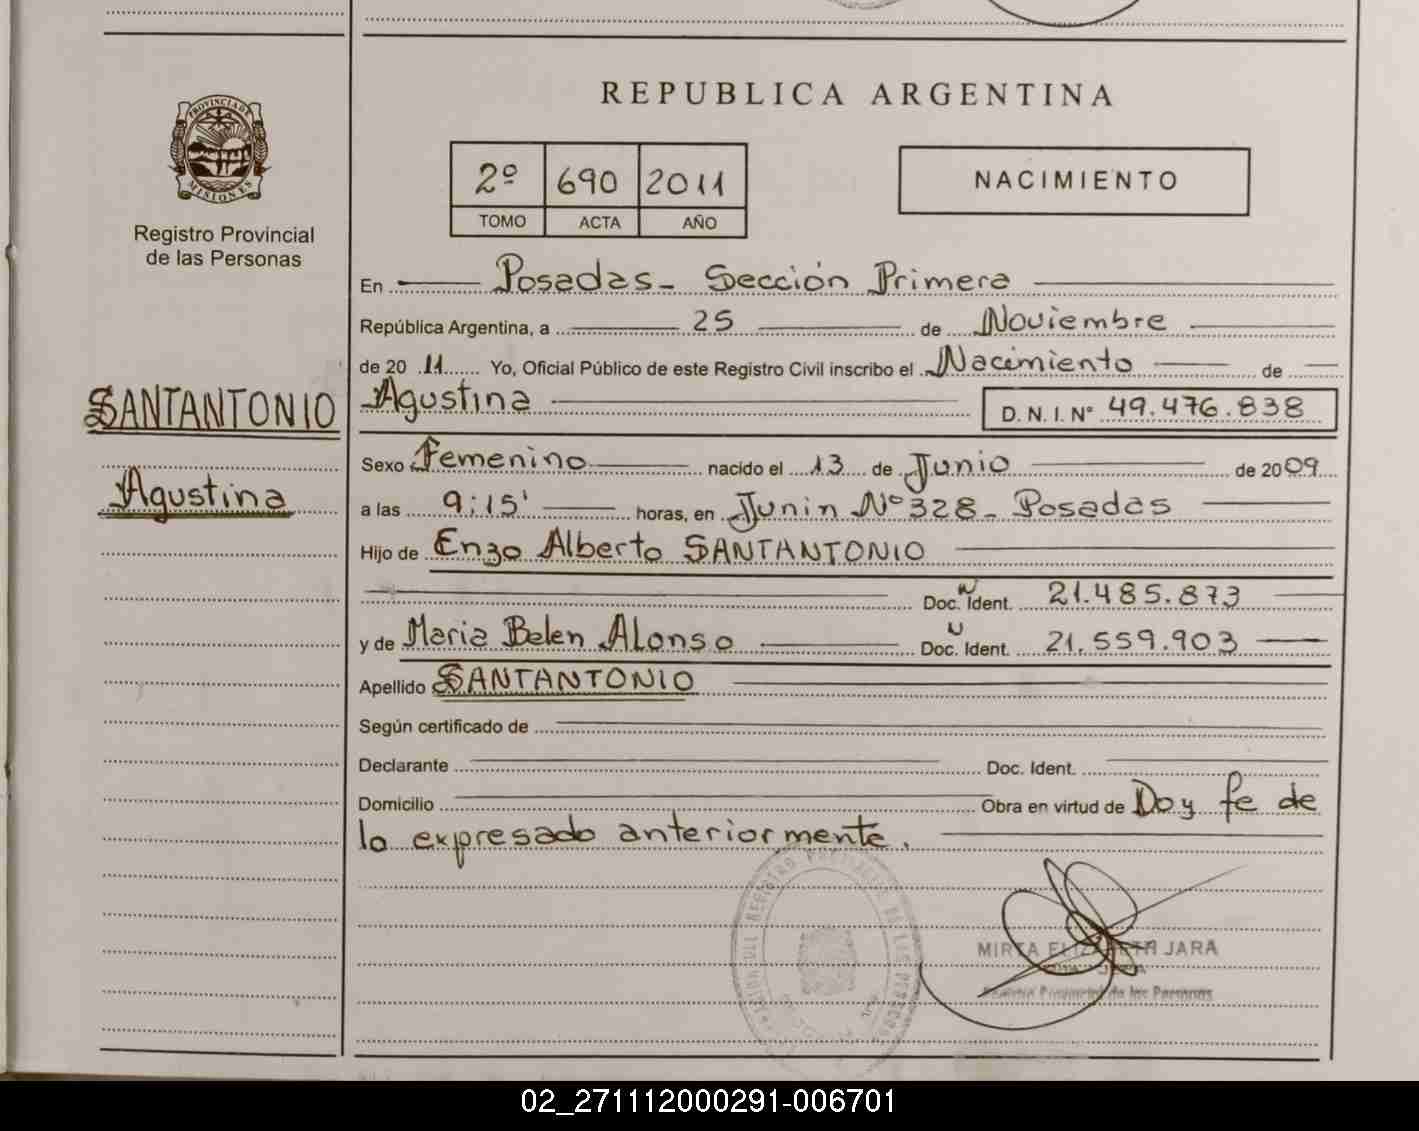 REPUBLICA ARGENTINA
PROVINCIA DE
MISIONES
Registro Provincial
de las Personas
2º 690 2011
TOMO ACTA AÑO
NACIMIENTO
En Posadas - Sección Primera
República Argentina, a 25 de Noviembre
de 20 11 Yo, Oficial Público de este Registro Civil inscribo el Nacimiento de
SANTANTONIO
Agustina D. N. I. Nº 49.476.838
Sexo Femenino nacido el 13 de Junio de 2009
Agustina
a las 9:15' horas, en Junin Nº 328 - Posadas
Hijo de Enzo Alberto SANTANTONIO
Doc. Ident. 21.485.873
y de Maria Belen Alonso Doc. Ident. 21.559.903
Apellido SANTANTONIO
Según certificado de
Declarante Doc. Ident.
Domicilio Obra en virtud de Doy fe de
lo expresado anteriormente.
MIRTA ELIZABETH JARA
Registro Provincial de las Personas
02_271112000291-006701